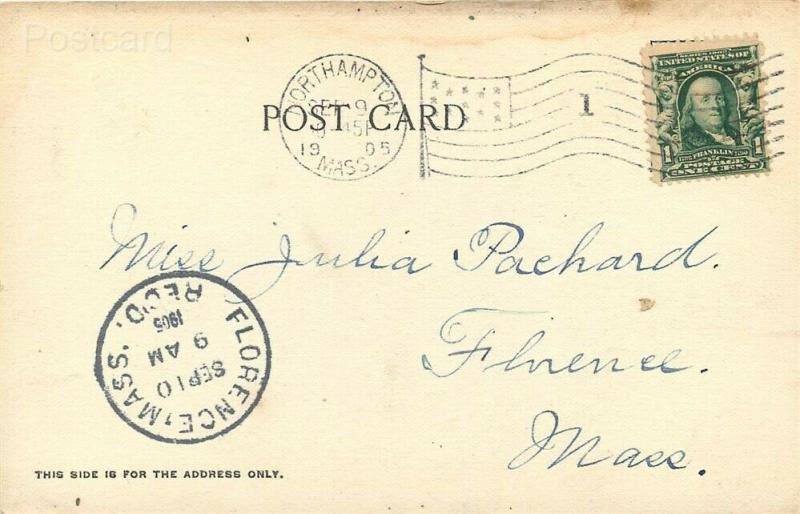 Postcard
NORTHAMPTON
SEP 9
15P
19 05
MASS.
1
SERIES 1902
UNITED STATES OF
AMERICA
1 FRANKLIN 1
POSTAGE
ONE CENT
POST CARD
Miss Julia Pachard.
Florence.
Mass.
FLORENCE, MASS.
REC'D.
1905
9 AM
SEP 10
THIS SIDE IS FOR THE ADDRESS ONLY.